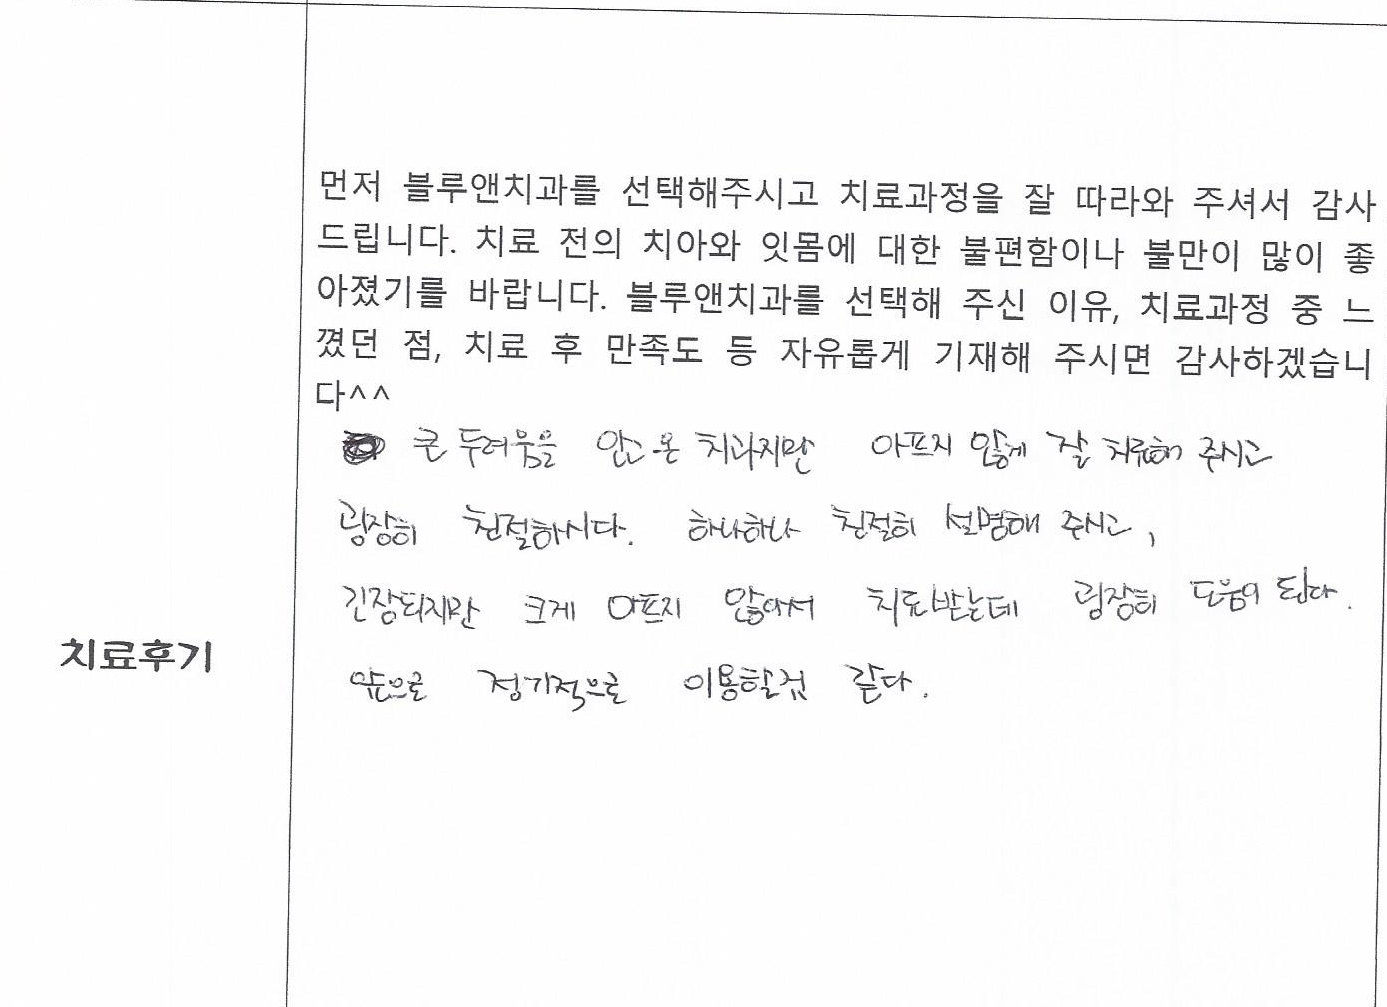 먼저 블루앤치과를 선택해주시고 치료과정을 잘 따라와 주셔서 감사
드립니다. 치료 전의 치아와 잇몸에 대한 불편함이나 불만이 많이 좋
아졌기를 바랍니다. 블루앤치과를 선택해 주신 이유, 치료과정 중 느
꼈던 점, 치료 후 만족도 등 자유롭게 기재해 주시면 감사하겠습니
다^^
큰 두려움을 안고 온 치과지만 아프지 않게 잘 치료해 주시고
굉장히 친절하시다. 하나하나 친절히 설명해 주시고,
긴장되지만 크게 아프지 않아서 치료받는데 굉장히 도움이 된다.
치료후기
앞으로 정기적으로 이용할것 같다.